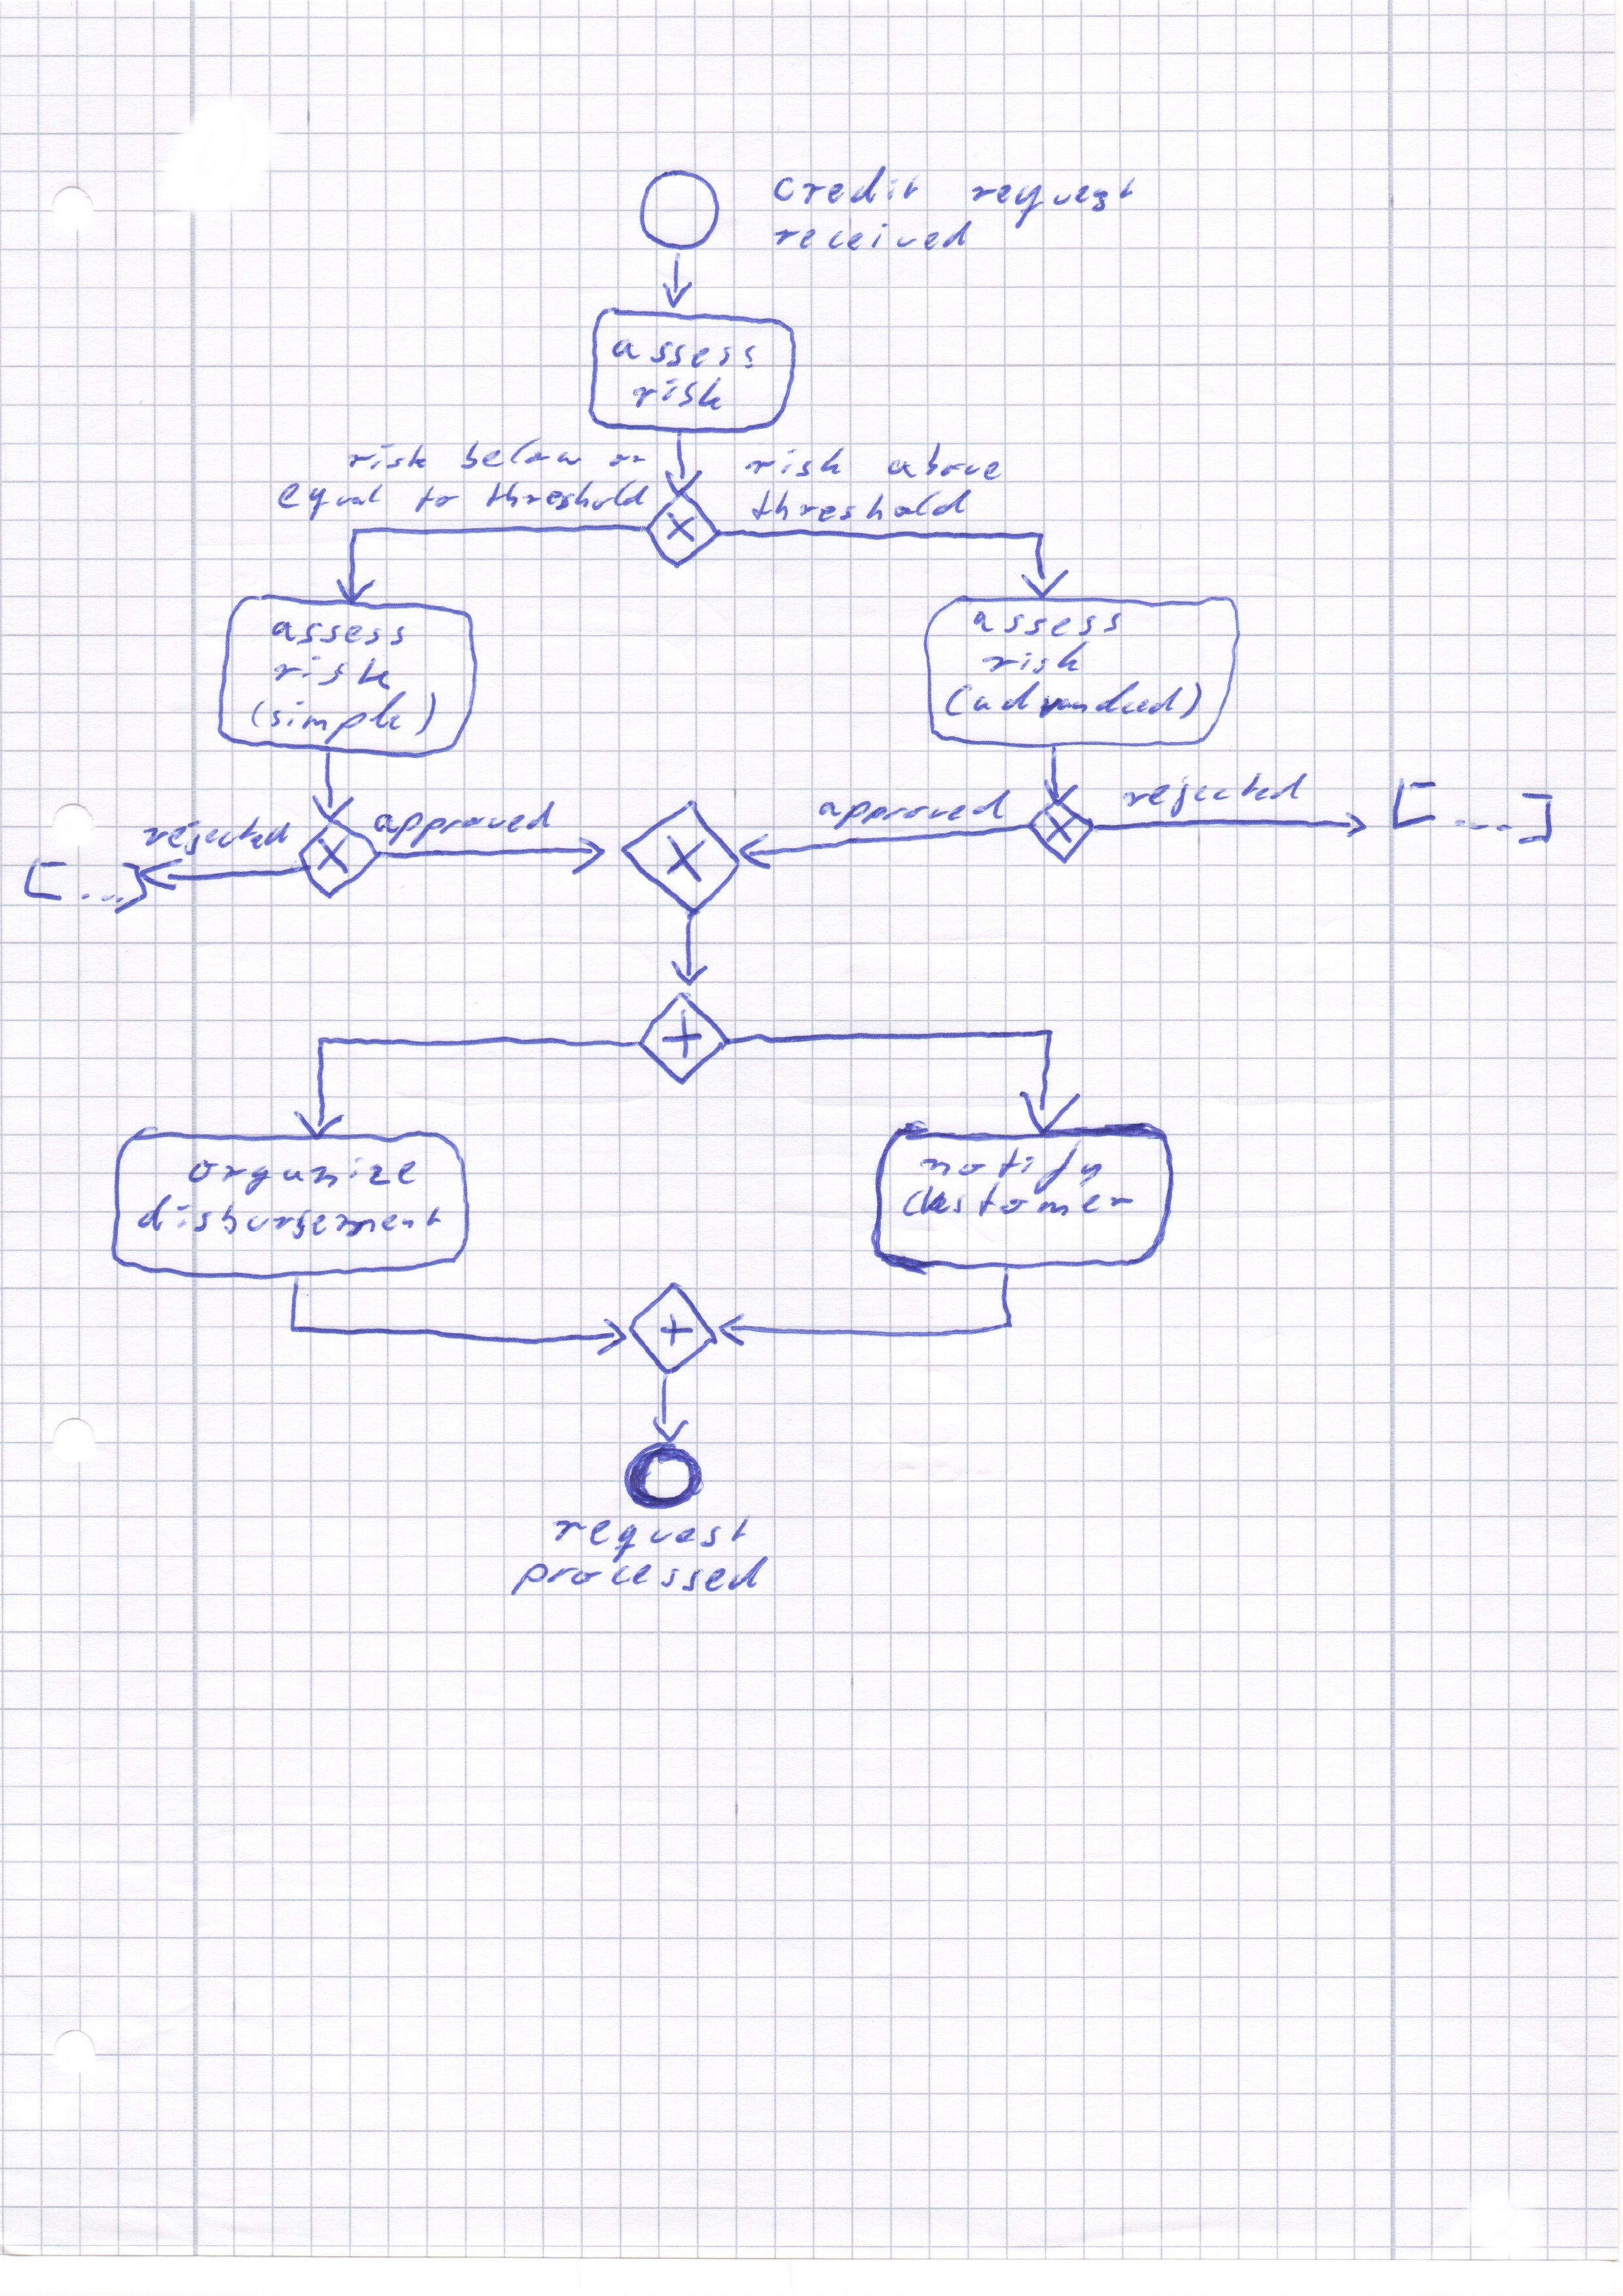 credit request
received
assess
risk
risk below or
equal to threshold
risk above
threshold
assess
risk
(simple)
assess
risk
(advanced)
rejected
approved
approved
rejected
[...]
[...]
organize
disbursement
notify
customer
request
processed